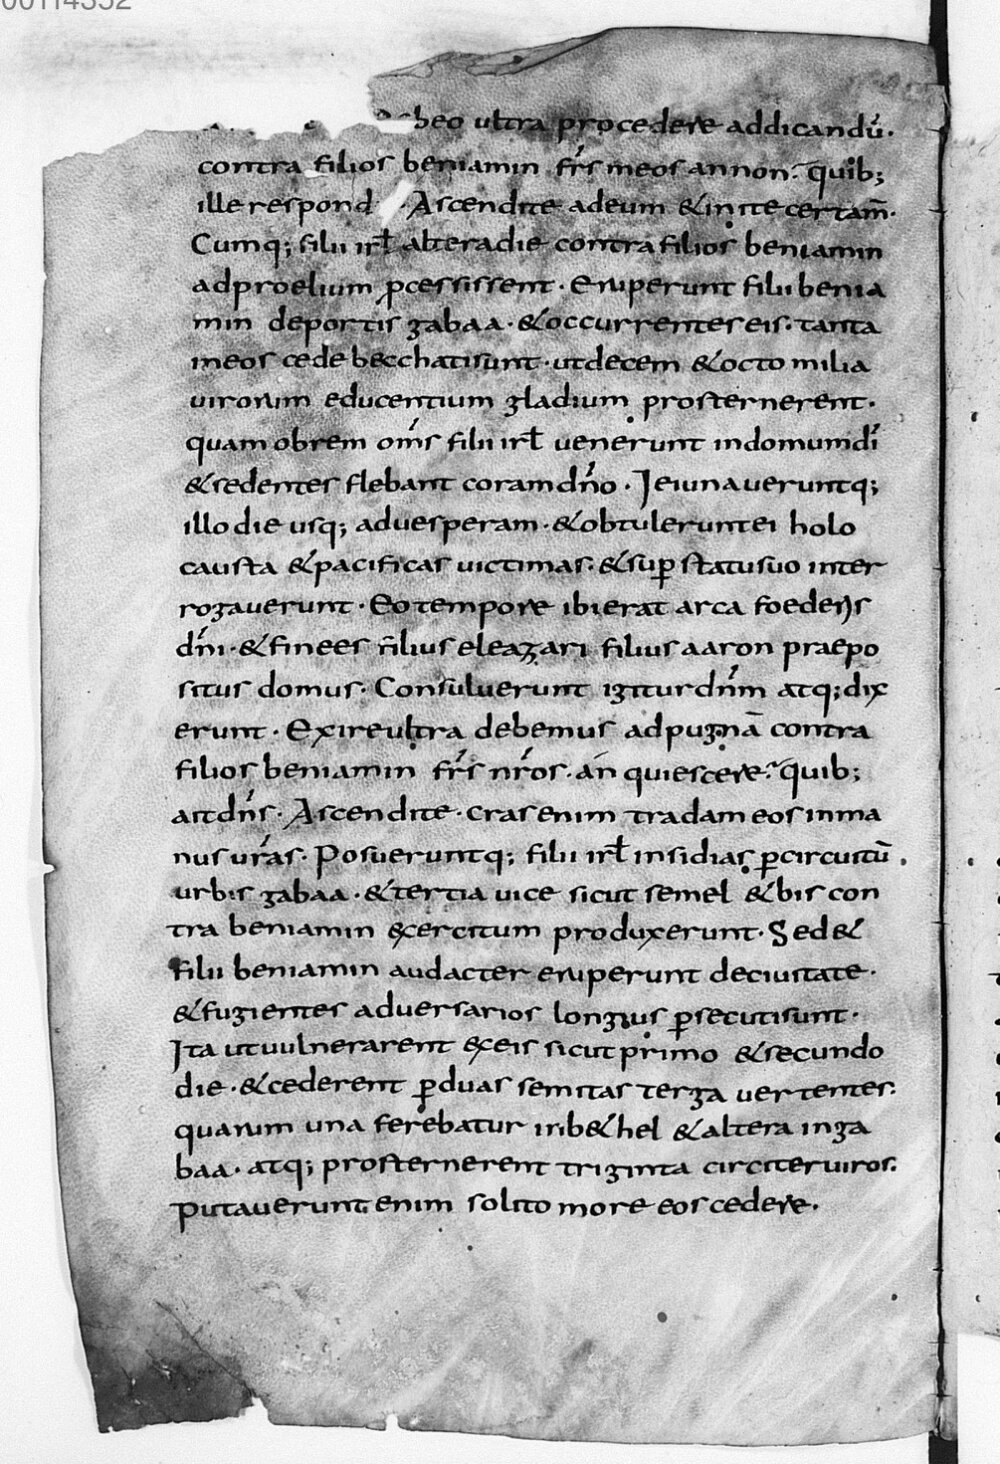 00114352
beo ultra procedere addicandu᷑.
contra filios beniamin fr̄s meos annon. quib;
ille respond · Ascendite adeum & inite certam̄.
Cumq; filii irł altera die contra filios beniamin
ad proelium ꝓcessissent · Eruperunt filii benia
min de portis gabaa · & occurrentes eis · tanta
in eos cede becchati sunt · ut decem & octo milia
uirorum educentium gladium prosternerent ·
quam obrem om̄s filii irł uenerunt in domum dī
& sedentes flebant coram dn̄o · Ieiunaueruntq;
illo die usq; ad uesperam · & obtulerunt ei holo
causta & pacificas uictimas · & sup̄ statu suo inter
rogauerunt · Eo tempore ibi erat arca foederis
dn̄i · & finees filius eleazari filius aaron praepo
situs domus · Consuluerunt igitur dn̄m atq; dix
erunt · Exire ultra debemus ad pugnā contra
filios beniamin fr̄s nr̄os · an̄ quiescere · quib;
ait dn̄s · Ascendite · cras enim tradam eos in ma
nus ur̄as · Posueruntq; filii irł insidias ꝑ circuitū
urbis gabaa · & tertia uice sicut semel & bis con
tra beniamin exercitum produxerunt · Sed &
filii beniamin audacter eruperunt de ciuitate ·
& fugientes aduersarios longius ꝑsecuti sunt ·
Ita ut uulnerarent ex eis sicut primo & secundo
die · & cederent ꝑ duas semitas terga uertentes ·
quarum una ferebatur in b&hel & altera in ga
baa · atq; prosternerent triginta circiter uiros ·
putauerunt enim solito more eos cedere ·